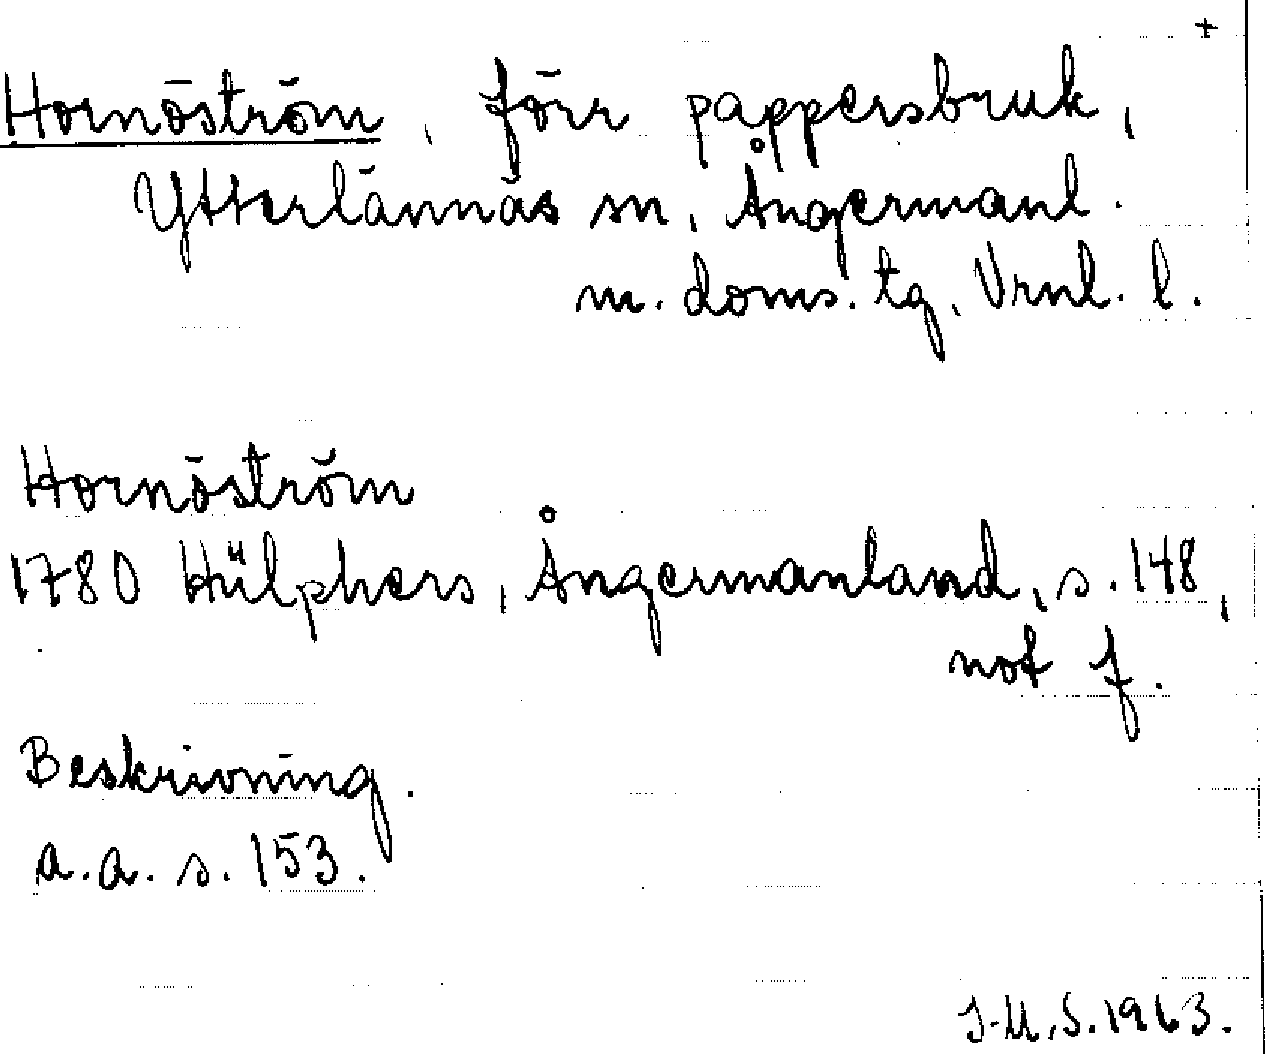 +
Hornöström, förr pappersbruk,
Ytterlännäs sn, Ångermanl.
m. doms. tg, Vrnl. l.
Hornöström
1780 Hülphers, Ångermanland, s. 148,
not f.
Beskrivning.
a.a. s. 153.
J-U.S. 1963.